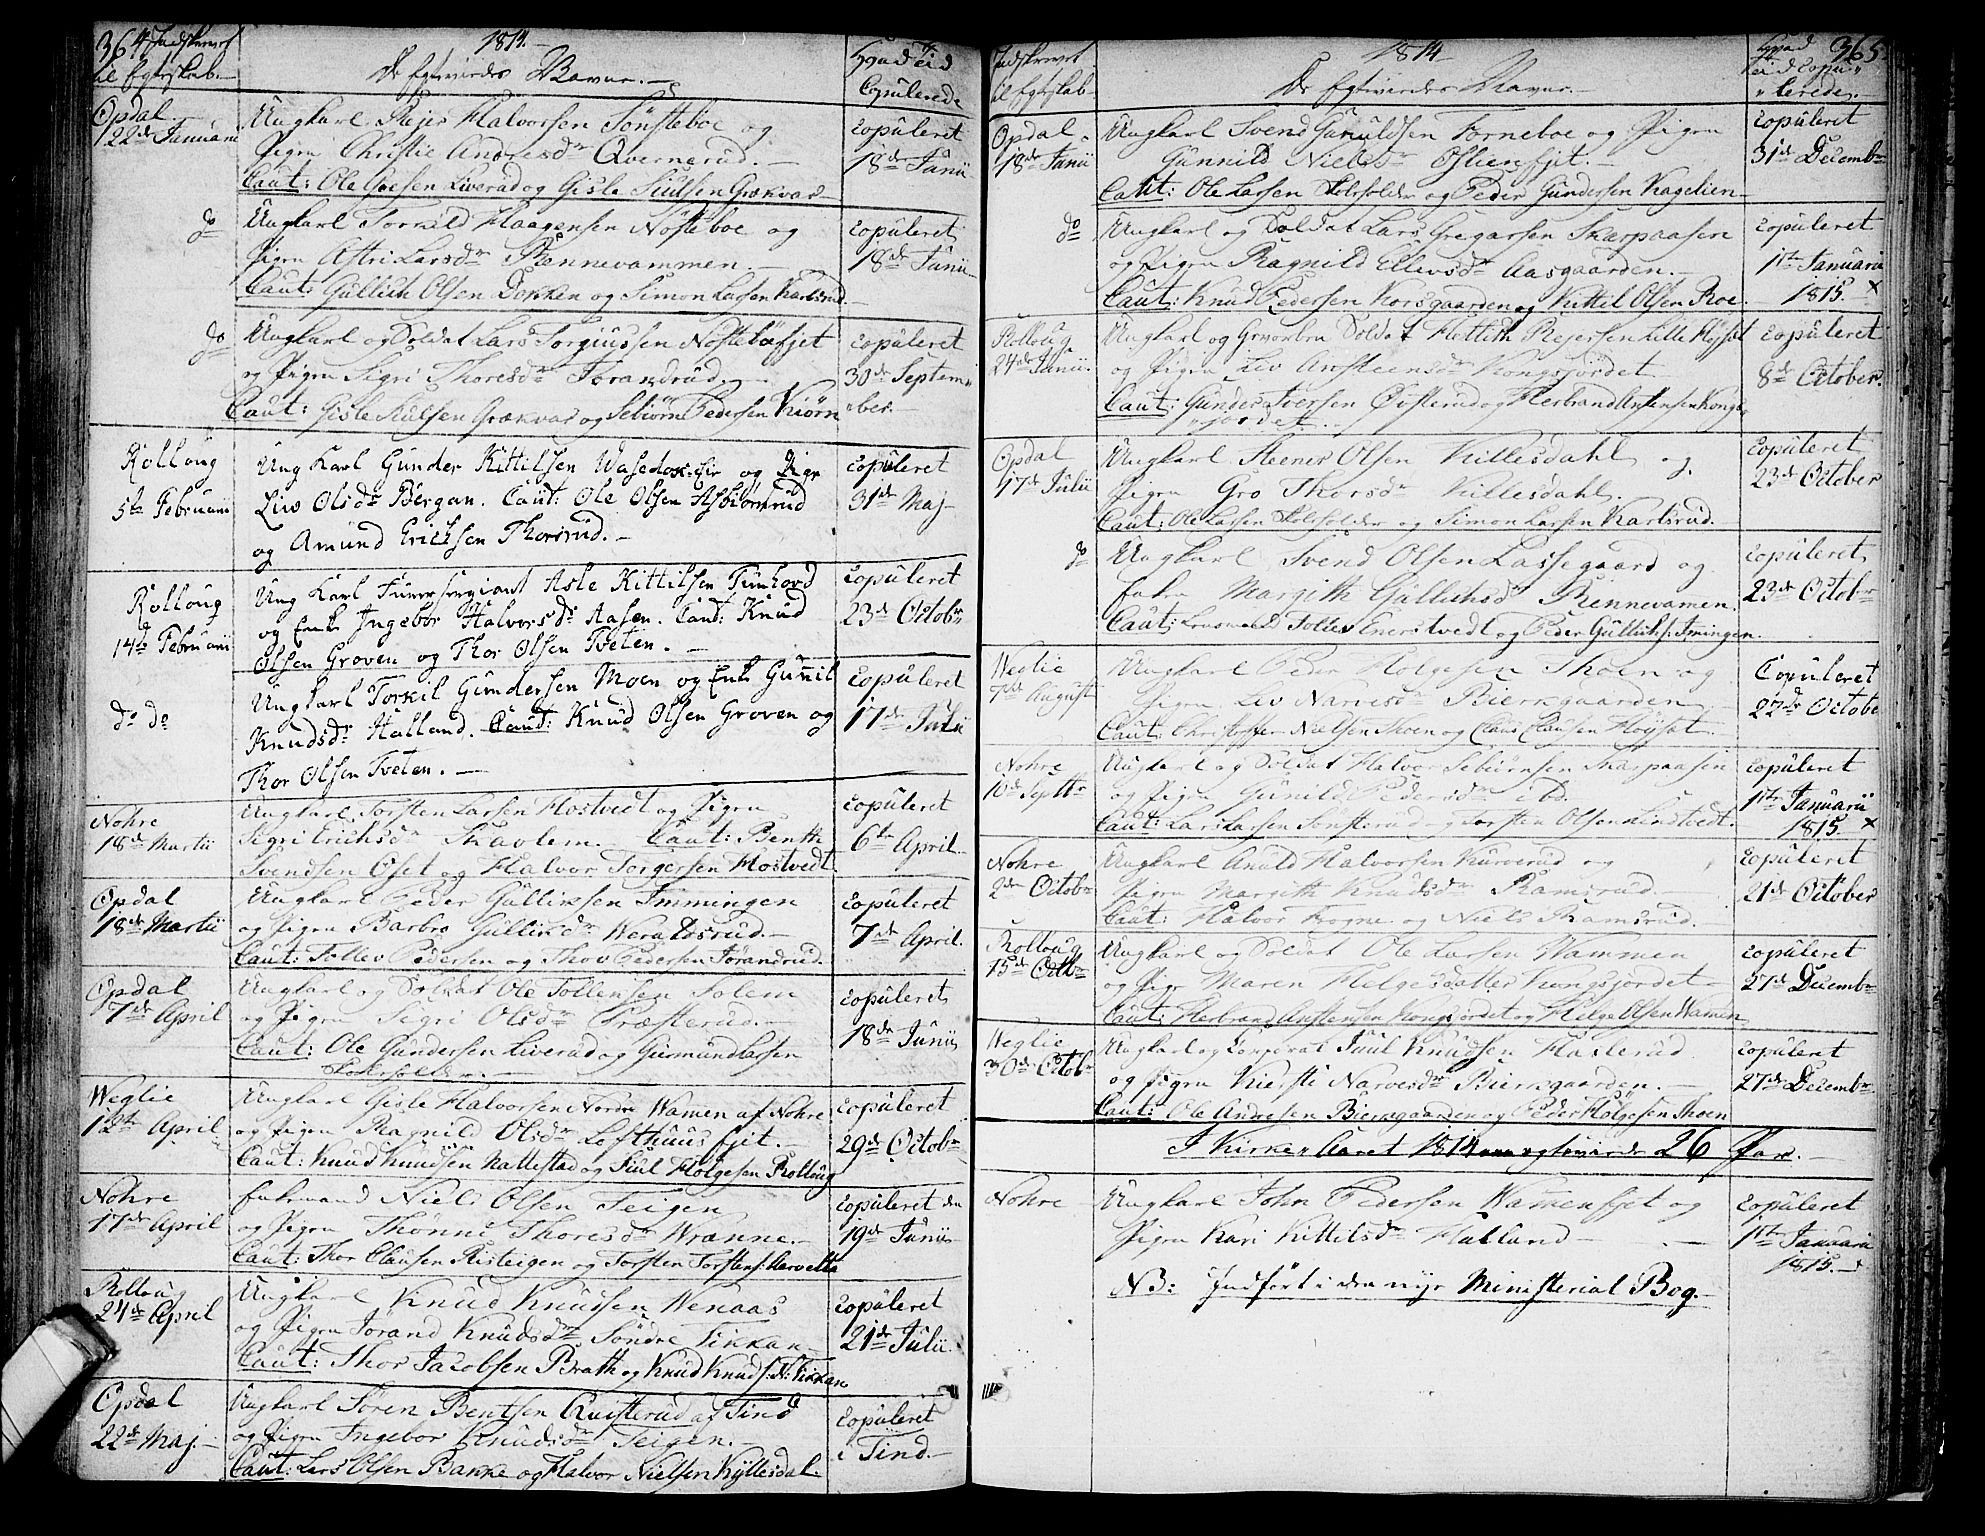 364
1814.
Indskrevet
til Egteskab.
De Egteviedes Navne.
Hvad Tid
Copulerede
Opdal
22de Januarii
Ungkarl Halvorsen Sönsteboe og
Pigen Christie Andresdr Qvernerud.
Caut: Ole Liverud og Gisle Juulsen Grækvar
Copuleret
18de Junii
do
Ungkarl Torkild Haagensen Nösteboe og
Pigen Astri Larsdr Bennevammen.
Caut: Gullich Olsen Dokken og Simon Larsen Karlsrud.
Copuleret
18de Junii
do
Ungkarl og Soldat Lars Torgiussen Nösteböefjet
og Pigen Sigri Thoresdr Torandrud.
Caut: Gisle Juulsen Grækvar og Sebiörn Pedersen Kiörn
Copuleret
30de Septem-
ber.
Rolloug
5te Februarii
Ung Karl Gunder Kittilsen og Pige
Liv Olsdr Bergan. Caut: Ole Olsen Asbiörnrud
og Amund Erichsen Thorsrud.
Copuleret
31de Maj
Rolloug
14de Februarii
Ung Karl Asle Kittilsen Tunhovd
og Enke Ingebor Halvorsdr Aasen. Caut: Knud
Olsen Groven og Thor Olsen Tveten.
Copuleret
23de Octobr
do do
Ungkarl Torkil Gundersen Moen og Enke Gunnil
Knudsdr Halland. Caut: Knud Olsen Groven og
Thor Olsen Tveten.
Copuleret
17de Julii
Nohre
18de Martii
Ungkarl Torsten Larsen Mostvedt og Pigen
Sigri Erichsdr Skavlem. Caut: Benth
Svendsen Öset og Halvor Torgersen Mostvedt.
Copuleret
6te April
Opdal
18de Martii
Ungkarl Peder Gullicksen Immingen
og Pigen Barbro Gullicksdr Heraldsrud.
Caut: Tollev Pedersen og Thov Pedersen Törandrud.
Copuleret
7de April.
Opdal
7de April
Ungkarl og Soldat Ole Tollevsen Solem
og Pigen Sigri Olsdr Præsterud.
Caut: Ole Gundersen Liverud og Guumund Larsen
Skoleholder.
Copuleret
18de Junii
Weglie
12te April
Ungkarl Gisle Halvorsen Nordre Wamen af Nohre
og Pigen Ragnild Olsdr Lofthuusfjet.
Caut: Knud Knudsen Nattestad og Juul Holgesen Rolloug
Copuleret
29de Octobr
Nohre
17de April
Enkemand Niels Olsen Teigen
og Pigen Thönne Thoresdr Wranne.
Caut: Thor Clausen Risteigen og Torsten Torstens:
Copuleret den
19de Junii
Rolloug
24de April
Ungkarl Knud Knudsen Wenaas
og Pigen Jorand Knudsdr Söndre Fikkan
Caut: Thor Jacobsen Brath og Knud Knuds: N: Fikkan
Copuleret
21de Julii
Opdal
22de Maj
Ungkarl Sören Bentsen Quisterud af Tind
og Pigen Ingebor Knudsdr Teigen.
Caut: Lars Olsen Bakke og Halvor Nielsen Kyllesdal.
Copuleret
i Tind.
365
1814
Indskrevet
til Egteskab
De Egteviedes Navne.
Hvad
Tid Copu-
lerede.
Opdal
18de Junii
Ungkarl Svend Torneboe og Pigen
Gunnild Nielsdr Öslienfjet.
Caut: Ole Larsen Skoleholder og Peder Gundersen Kragelien
Copuleret
31de Decembr
do
Ungkarl og Soldat Lars Gregarsen Skarpaasen
og Pigen Ragnild Ellevsdr Aasgaarden.
Caut: Knud Pedersen Korsgaarden og Kittil Olsen Roe.
Copuleret
1te Januarii
1815. x
Rolloug
24de Junii.
Ungkarl og Soldat Hellith Reiersen Lille Höyset
og Pigen Liv Anfteensdr Kongsjordet
Caut: Gunder Iversen Öusterud og Herbrand Anstensen Kongs-
jordet.
Copuleret
8de October.
Opdal
17de Julii
Ungkarl Steener Olsen Killesdahl og
Pigen Gro Thorsdr Killesdahl.
Caut: Ole Larsen Skoleholder og Simon Larsen Karlsrud.
Copuleret
23de October
do
Ungkarl Svend Olsen Lassegaard og
Enken Margith Gullichsdr Bennevamen.
Caut: Tollev Enerstvedt og Peder Gullichs: Imingen.
Copuleret
23de Octobr
Weglie
7de August
Ungkarl Peder Holgesen Thoen og
Pigen Liv Narvesdr Bierkgaarden
Caut: Christoffer Nielsen Thoen og Claus Clausen Höyset.
Copuleret
22de Octobe
Nohre
10de Septbr
Ungkarl og Soldat Halvor Sebiörnsen Skarpaasen
og Pigen Gunild Pedersdr ibd.
Caut: Lars Larsen Sönsterud og Torsten Olsen Lindtvedt.
Copuleret
1te Januarii
1815. x
Nohre
2de Octobr
Ungkarl Halvorsen Kurverud og
Pigen Margith Knudsdr Ramsrud.
Caut: Halvor Frogne og Niels Ramsrud.
Copuleret
21de October
Rolloug
15de Octbr
Ungkarl og Soldat Ole Larsen Wammen
og Pige Maren Helgesdatter Kongsjordet
Caut: Herbrand Anstensen Kongsjordet og Helge Olsen Wamen
Copuleret
27de Decembr
Weglie
30de Octobr
Ungkarl og Corporal Juul Knudsen Haslerud
og Pigen Kiersti Narvesdr Bierkgaarden.
Caut: Ole Andresen Bierkgaarden og Peder Holgesen Thoen
Copuleret
27de Decembr
I Kirke-Aaret 1814 egteviede 26 Par.
Nohre
Ungkarl John Pedersen Wamenfjet og
Pigen Kari Kittilsdr Halland
Copuleret
1te Januarii
1815.
NB: Indfört i den nye Ministerial Bog.